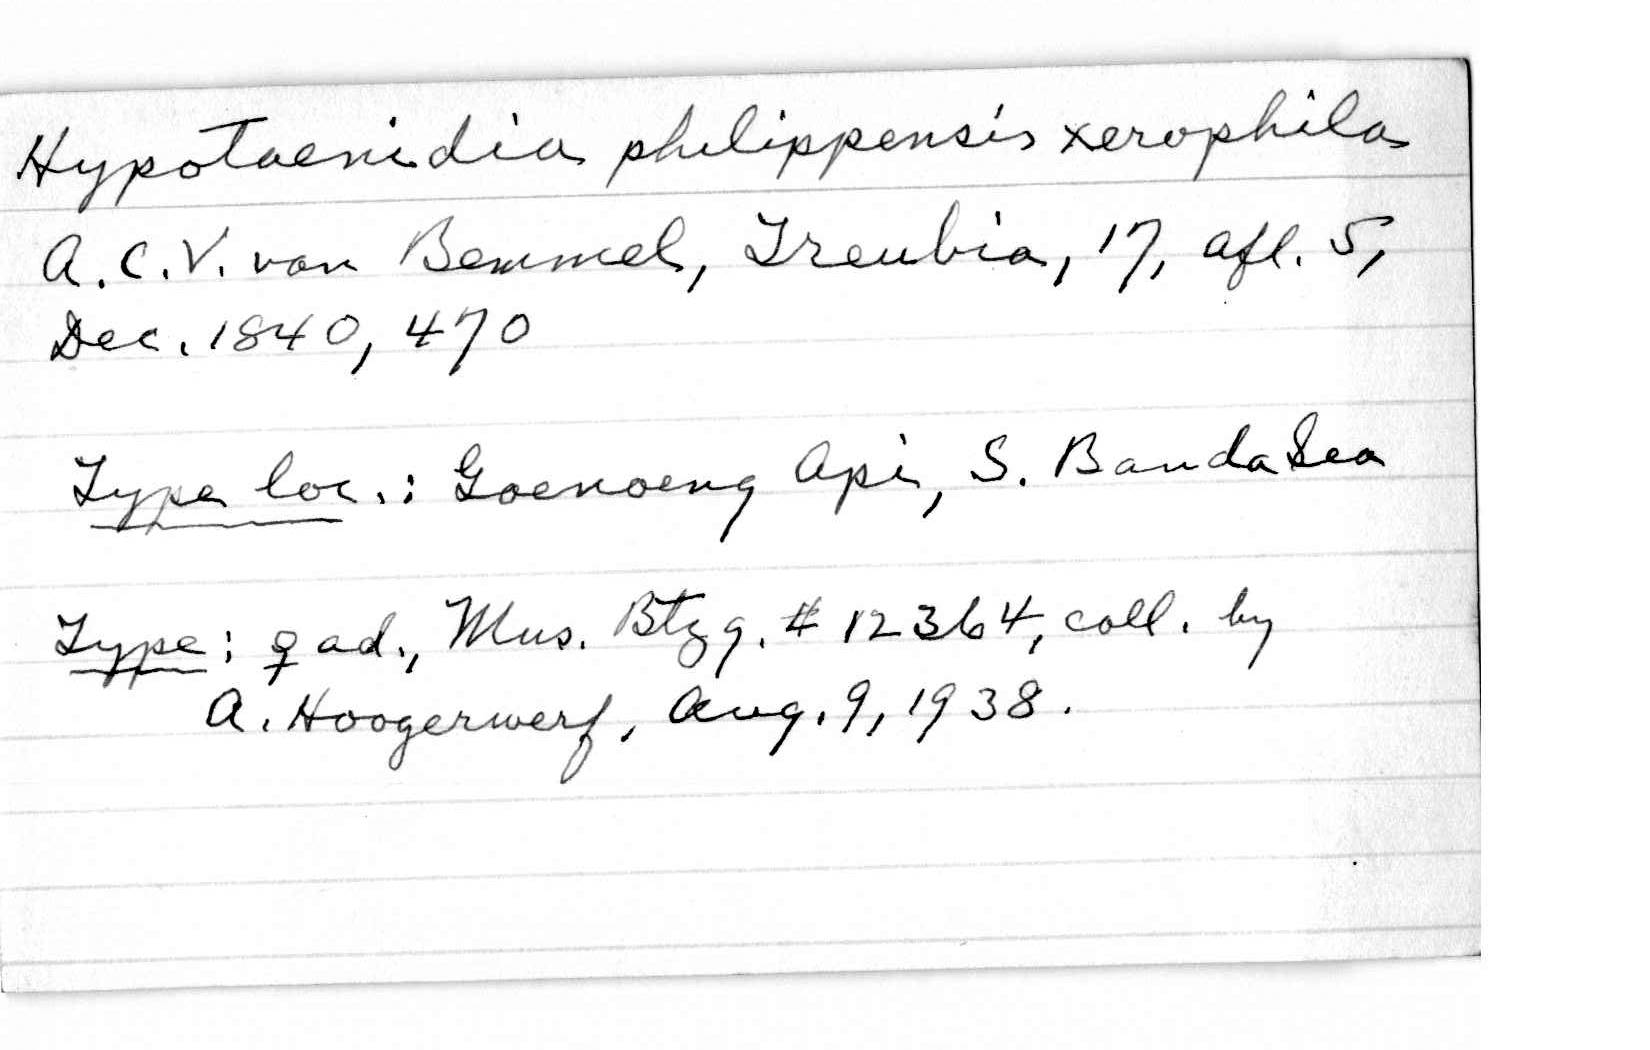 Hypotaenidia philippensis xerophila
A.C.V. van Bemmel, Treubia, 17, afl. 5,
Dec. 1840, 470
Type loc.: Goenoeng Api, S. Banda Sea
Type: ♀ ad., Mus. Btzg. # 12364, coll. by
A. Hoogerwerf, Aug. 9, 1938.